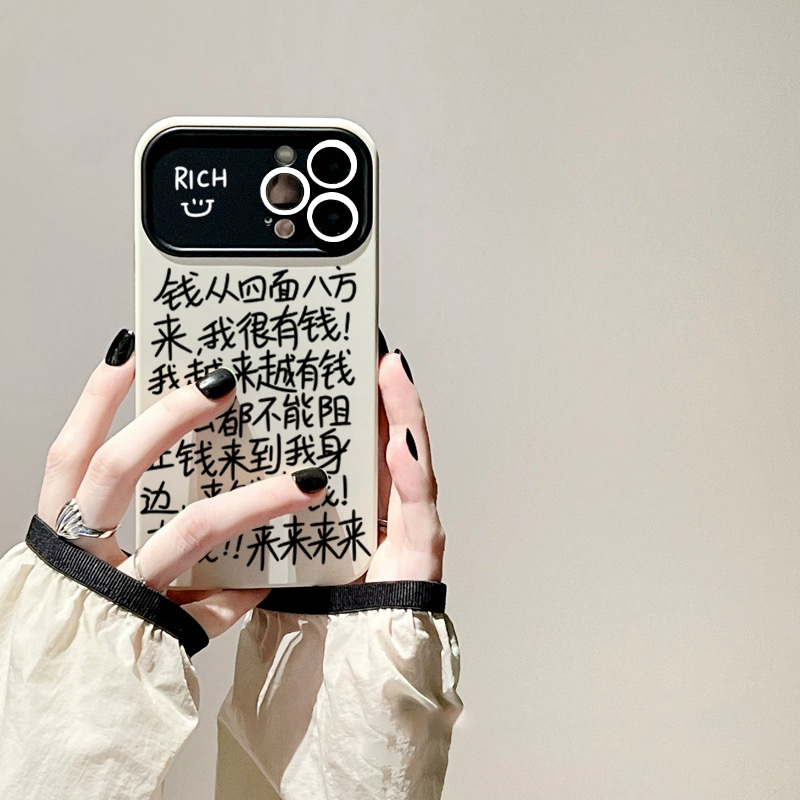 RICH
钱从四面八方
来,我很有钱!
我越来越有钱
都不能阻
止钱来到我身
边,来钱!
!!来来来来